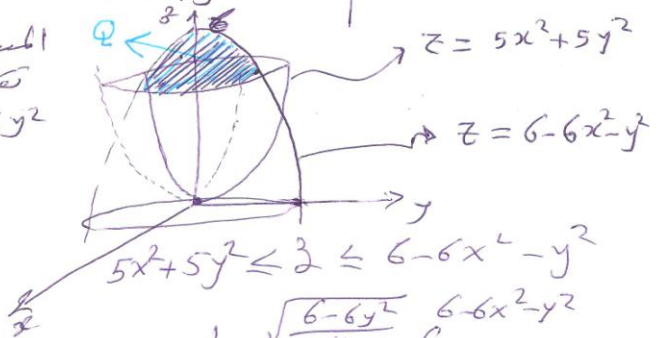 z 6
Q
z = 5x²+5y²
y²
z = 6-6x²-y²
y
5x²+5y² ≤ z ≤ 6-6x²-y²
x
√(6-6y²) 6-6x²-y²